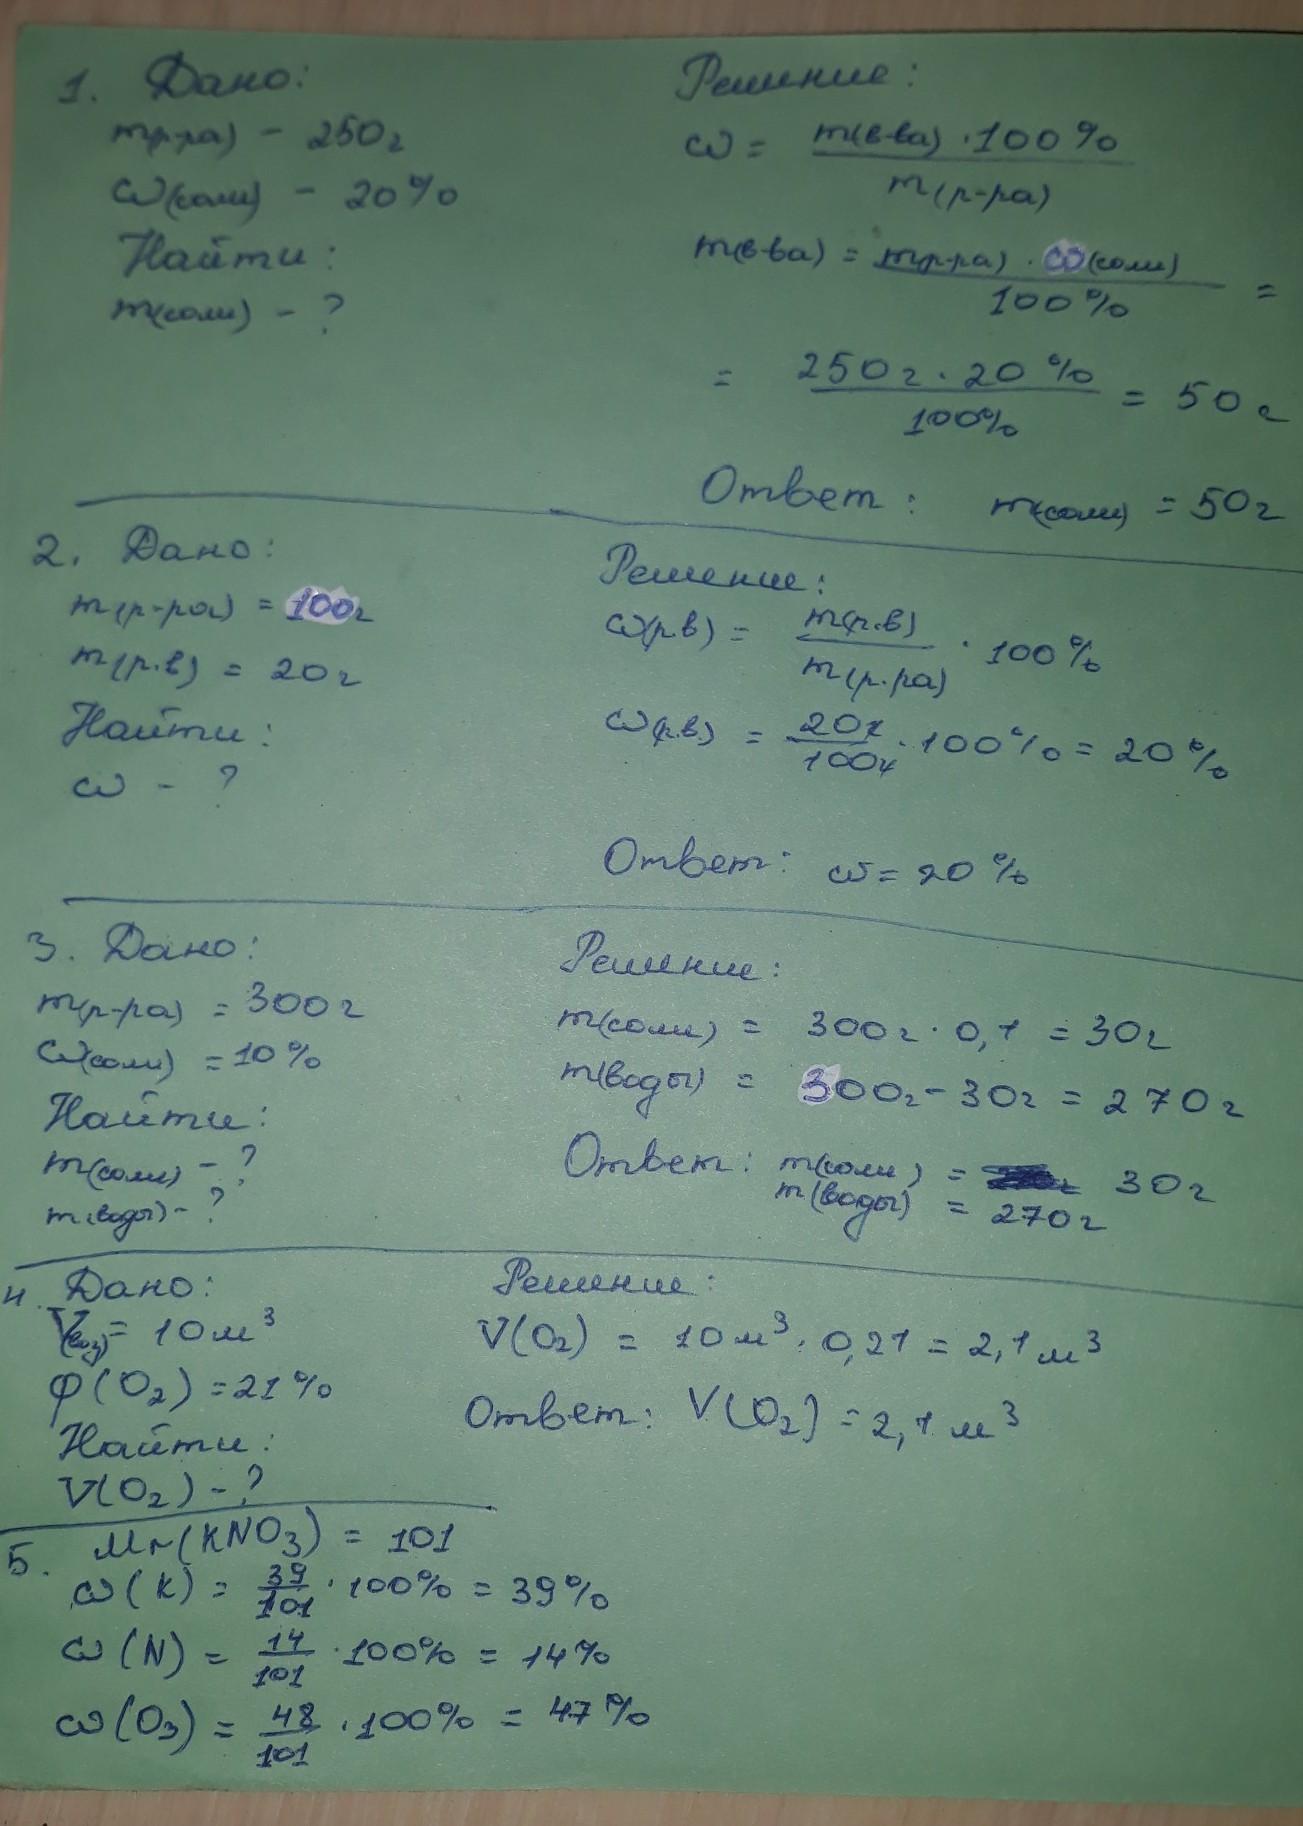 1. Дано:
m(р-ра) - 250г
ω(соли) - 20%
Найти:
m(соли) - ?
Решение:
ω = m(в-ва) · 100% / m(р-ра)
m(в-ва) = m(р-ра) · ω(соли) / 100% =
= 250г · 20% / 100% = 50г
Ответ: m(соли) = 50г
2. Дано:
m(р-ра) = 100г
m(р.в) = 20г
Найти:
ω - ?
Решение:
ω(р.в) = m(р.в) / m(р.ра) · 100%
ω(р.в.) = 20г / 100г · 100% = 20%
Ответ: ω = 20%
3. Дано:
m(р-ра) = 300г
ω(соли) = 10%
Найти:
m(соли) - ?
m(воды) - ?
Решение:
m(соли) = 300г · 0,1 = 30г
m(воды) = 300г - 30г = 270г
Ответ: m(соли) = 30г
m(воды) = 270г
4. Дано:
V(воз) = 10м³
φ(O₂) = 21%
Найти:
V(O₂) - ?
Решение:
V(O₂) = 10м³ · 0,21 = 2,1м³
Ответ: V(O₂) = 2,1м³
5. Mr(KNO₃) = 101
ω(K) = 39/101 · 100% = 39%
ω(N) = 14/101 · 100% = 14%
ω(O₃) = 48/101 · 100% = 47%